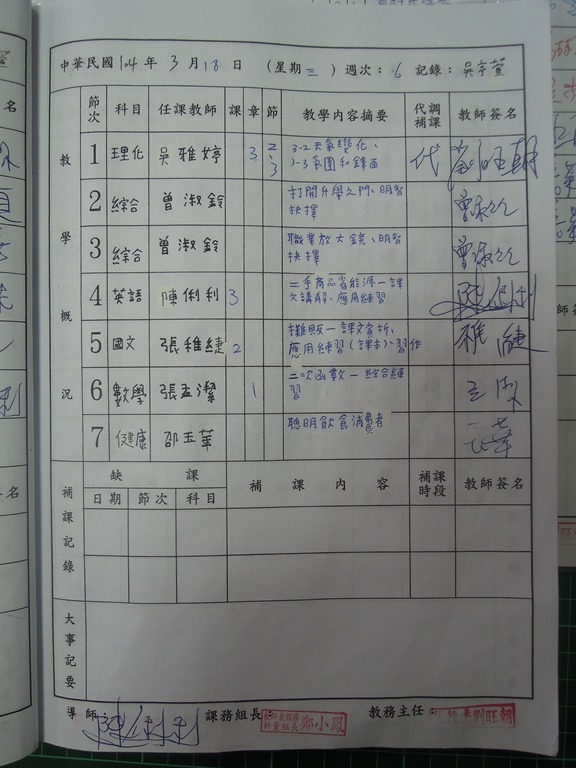 中華民國104年3月18日 (星期三) 週次：6 記錄：吳宇萱
教學概況
節次 科目 任課教師 課 章 節 教學內容摘要 代調補課 教師簽名
1 理化 吳雅婷 3 2、3 3-2天氣變化、 代 劉旺朝
3-3氣團和鋒面
2 綜合 曾淑鈴 打開升學之門、明智
抉擇
3 綜合 曾淑鈴 職業放大鏡、明智
抉擇
4 英語 陳俐利 3 二手商品省能源－課 陳俐利
文講解、應用練習
5 國文 張稚緁 2 攤販－課文賞析、
應用練習(課本)、習作
6 數學 張孟潔 1 二次函數－綜合練
習
7 健康 邵玉華 聰明飲食消費者
補課記錄
缺課 補課內容 補課時段 教師簽名
日期 節次 科目
大事記要
導師：陳俐利 課務組長： 鄭小鳳 教務主任： 劉旺朝